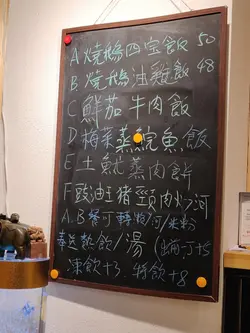 A 燒鵝四宝飯 50
B 燒鵝油雞飯 48
C 鮮茄牛肉飯
D 梅菜蒸鯇魚飯
E 土魷蒸肉餅
F 豉油王豬頸肉炒河
A.B 餐可轉粉/河/米粉
奉送熱飲/湯
凍飲+3 特飲+8